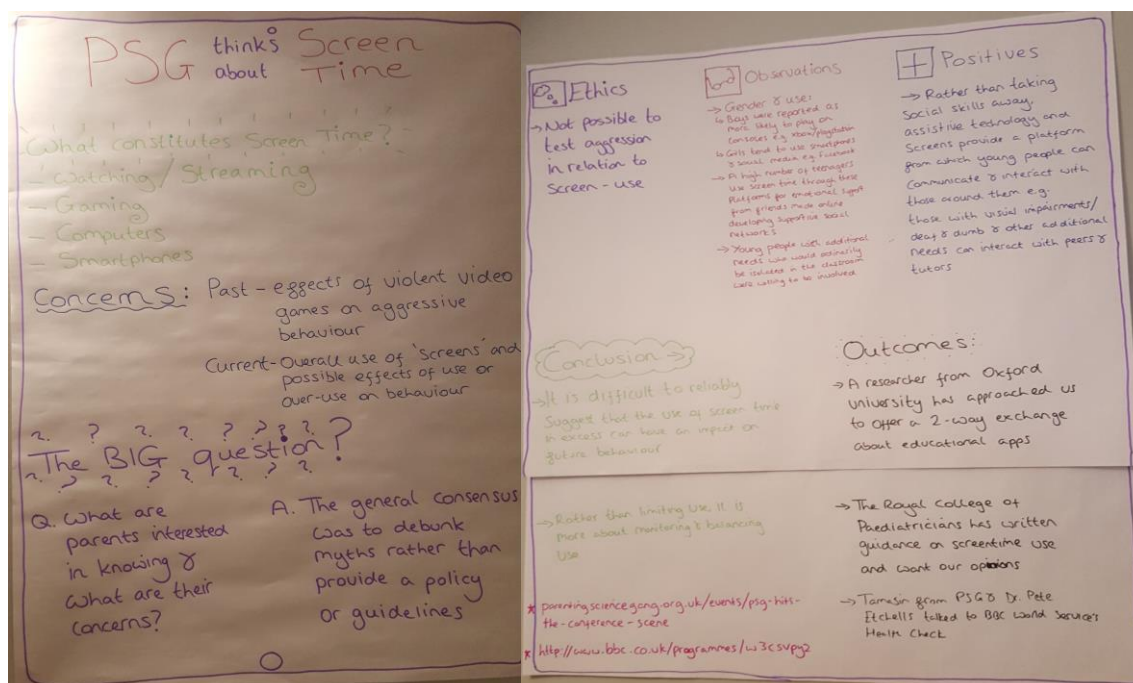 PSG thinks about Screen Time
What constitutes Screen Time?
- Watching / Streaming
- Gaming
- Computers
- Smartphones
Concerns: Past - effects of violent video
games on aggressive
behaviour
Current - Overall use of 'screens' and
possible effects of use or
over-use on behaviour
? ? ? ? ? ? ? ?
The BIG question?
? ? ? ? ? ? ?
Q. What are
parents interested
in knowing &
what are their
concerns?
A. The general consensus
was to debunk
myths rather than
provide a policy
or guidelines
Ethics
→ Not possible to
test aggression
in relation to
Screen-use
Observations
→ Gender & use:
↳ Boys were reported as
more likely to play on
consoles e.g. xbox/playstation
↳ Girls tend to use smartphones
& social media e.g.
→ A high number of teenagers
use screen time through these
platforms for emotional support
from friends made online
developing supportive social
networks
→ Young people with additional
needs who would ordinarily
be isolated in the classroom
were willing to be involved
+ Positives
→ Rather than taking
social skills away,
assistive technology and
Screens provide a platform
from which young people can
communicate & interact with
those around them e.g.
those with visual impairments/
deaf & dumb & other additional
needs can interact with peers &
tutors
Conclusion →
→ It is difficult to reliably
suggest that the use of screen time
in excess can have an impact on
future behaviour
→ Rather than limiting use, it is
more about monitoring & balancing
use
Outcomes:
→ A researcher from Oxford
University has approached us
to offer a 2-way exchange
about educational apps
→ The Royal College of
Paediatricians has written
guidance on screentime use
and want our opinions
→ Tamasin from PSG & Dr. Pete
Etchells talked to BBC World Service's
Health Check
* parentingsciencegang.org.uk/events/psg-hits-
the-conference-scene
* http://www.bbc.co.uk/programmes/w3csvpy2